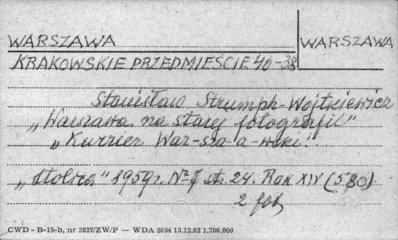 WARSZAWA
WARSZAWA
KRAKOWSKIE PRZEDMIEŚCIE 40-38
Stanisław Strumph-Wojtkiewicz
„Warszawa na starej fotografii"
„Kurrier War-sza a-wski!"
„Stolica" 1959r. Nr 7 st. 24. Rok XIV (580)
2 fot.
CWD - B-15-b, nr 2827/ZW/P — WDA 2694 13.12.62 1.700.000